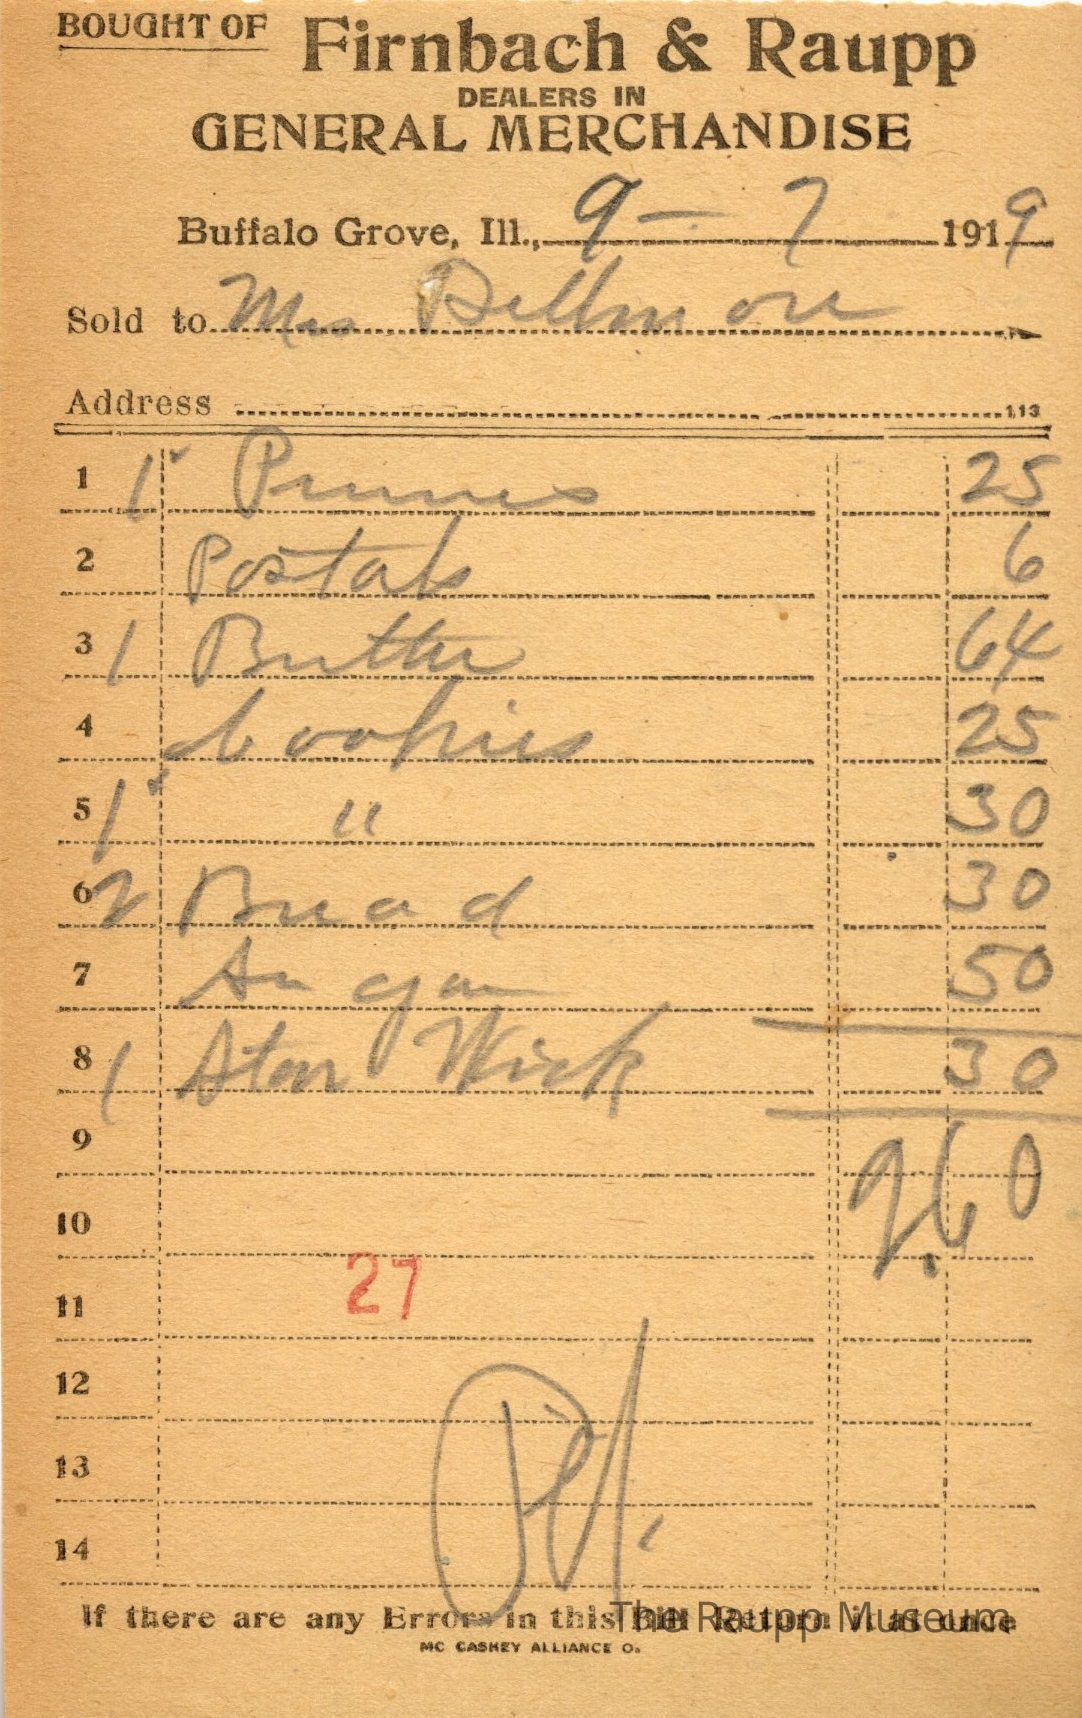 BOUGHT OF Firnbach & Raupp
DEALERS IN
GENERAL MERCHANDISE
Buffalo Grove, Ill., 9 - 7 1919
Sold to Mrs Dellmore
Address 113
1 1 Prunes 25
2 Postals 6
3 1 Butter 64
4 Cookies 25
5 1 " 30
6 2 Bread 30
7 50
8 1 Wick 30
9 2.60
10
11 27
12
13
14 Pd.
If there are any Errors in this Bill Return it at once
The Raupp Museum
MC CASKEY ALLIANCE O.